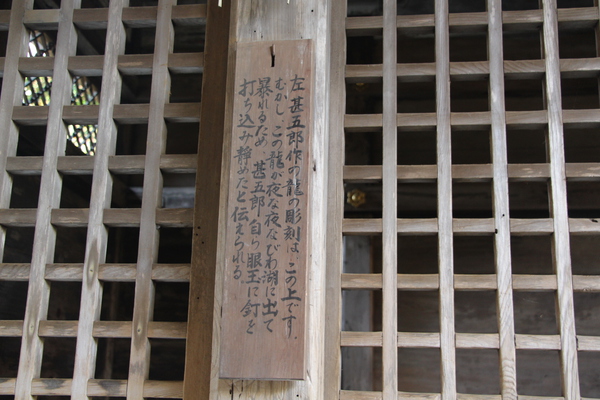 左甚五郎作の龍の彫刻は、この上です。
むかし、この龍が夜な夜なびわ湖に出て
暴れるため、甚五郎自ら眼玉に釘を
打ち込み静めたと伝えられる